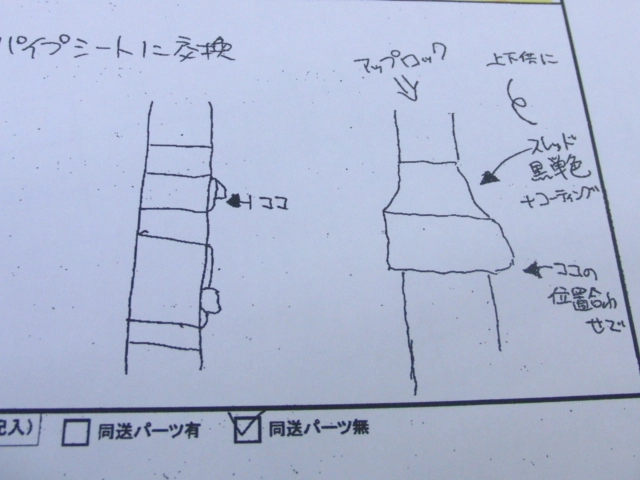 パイプシートに交換
アップロック
上下供に
スレッド
黒単色
+コーティング
ココ
ココの
位置合わ
せで
記入)
同送パーツ有
同送パーツ無